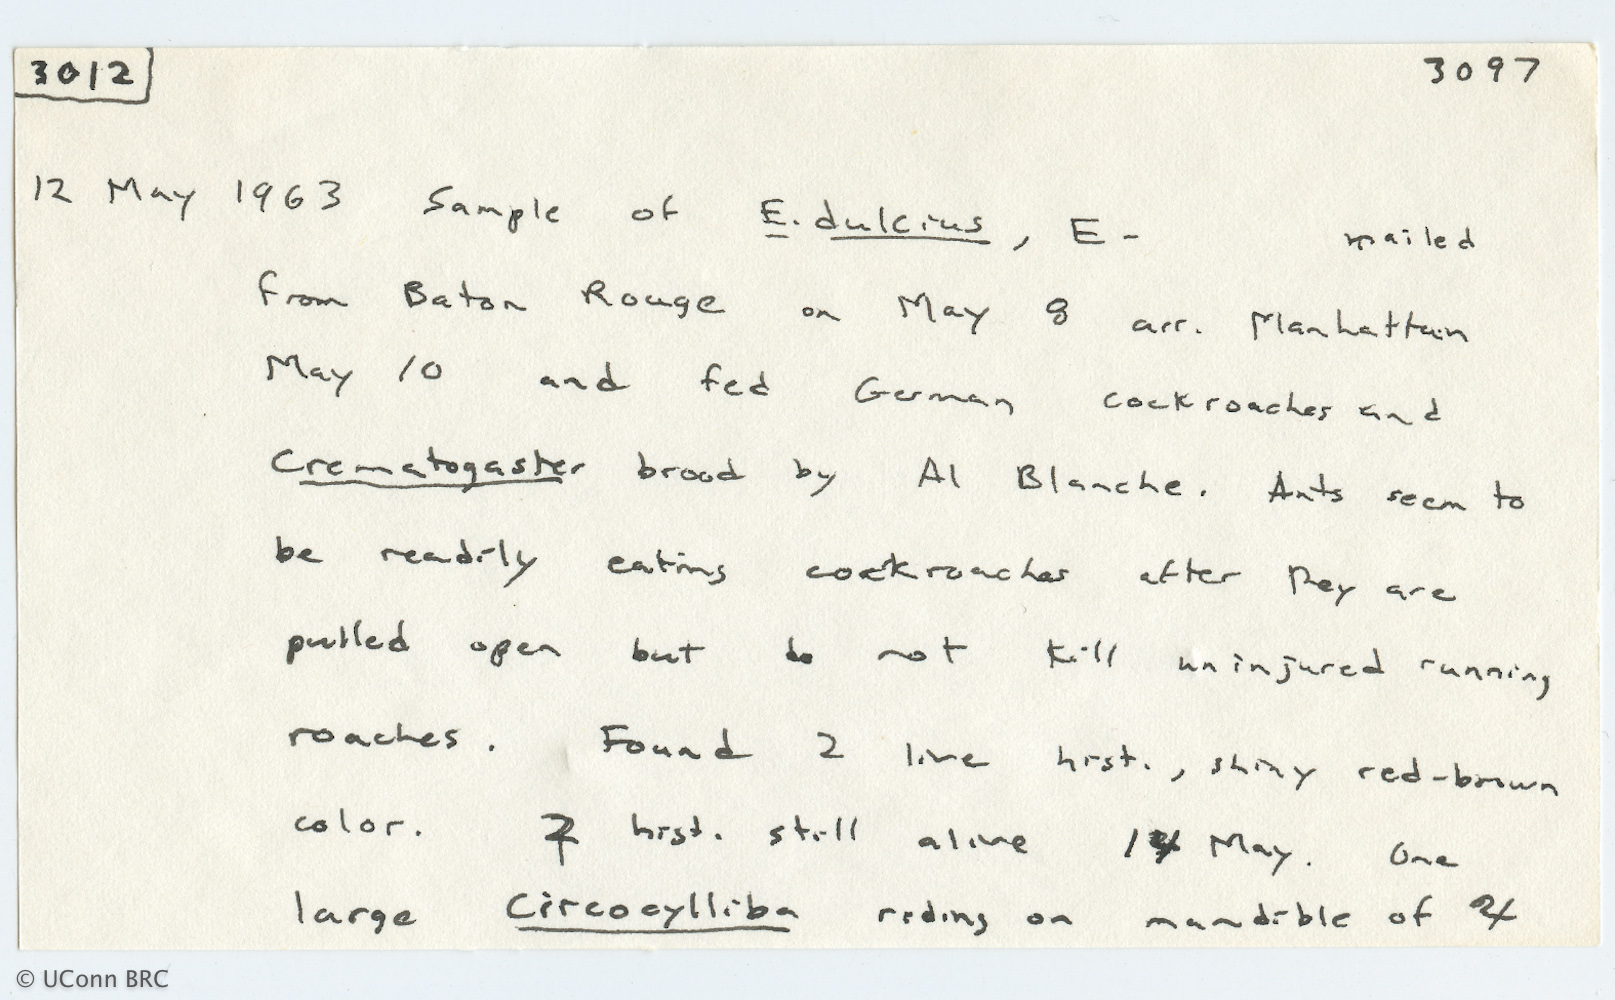 3012 3097
12 May 1963 Sample of E. dulcius, E- mailed
from Baton Rouge on May 8 arr. Manhattan
May 10 and fed German cockroaches and
Crematogaster brood by Al Blanche. Ants seem to
be readily eating cockroaches after they are
pulled open but do not kill uninjured running
roaches. Found 2 live hist., shiny red-brown
color. hist. still alive May. One
large Circocylliba riding on mandible of
© UConn BRC